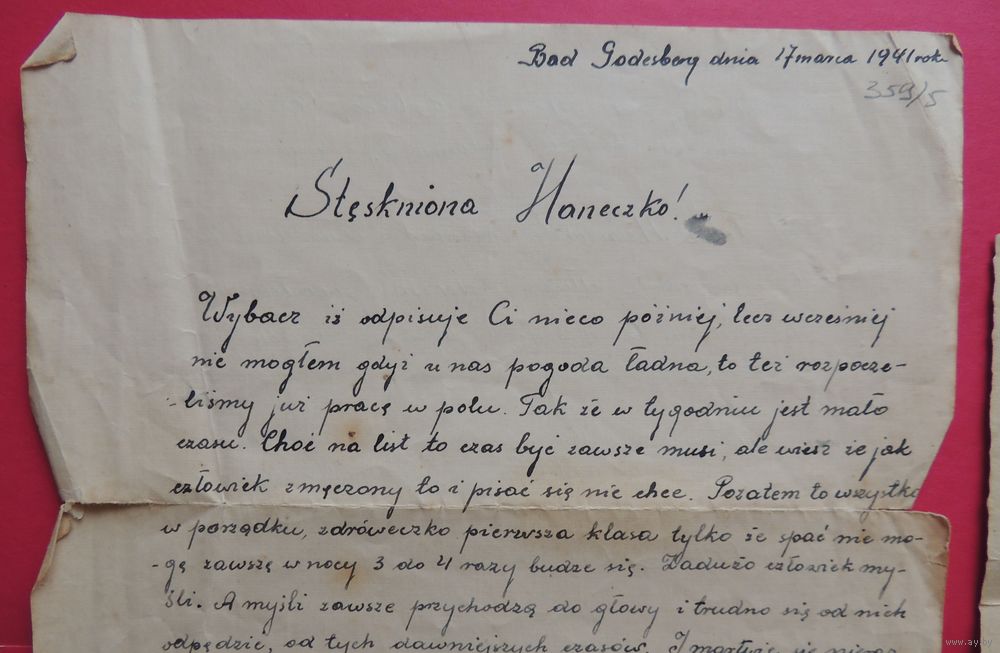 Bad Godesberg dnia 17 marca 1941 roku
359/5
Stęskniona Haneczko!
Wybacz iż odpisuje Ci nieco później, lecz wcześniej
nie mogłem gdyż u nas pogoda ładna, to też rozpocze-
-liśmy już pracę w polu. Tak że w tygodniu jest mało
czasu. Choć na list to czas być zawsze musi, ale wiesz że jak
człowiek zmęczony to i pisać się nie chce. Pozatem to wszystko
w porządku, zdróweczko pierwsza klasa tylko że spać nie mo-
-gę zawszę w nocy 3 do 4 razy budze się. Zadużo człowiek my-
śli. A myśli zawsze przychodzą do głowy i trudno się od nich
odpędzić, od tych dawniejszych czasów. I martwię się nieraz
www.ay.by